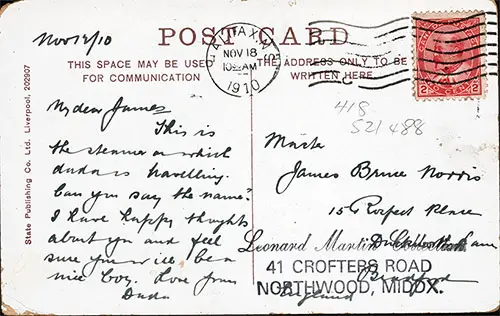 Nov 12/10
POST CARD
HALIFAX N.S.
NOV 18
AM
1910
THIS SPACE MAY BE USED
FOR COMMUNICATION
THE ADDRESS ONLY TO BE
WRITTEN HERE
2 2
State Publishing Co. Ltd. Liverpool, 202907
418
521488
My dear James
This is
the steamer on which
dada is travelling.
Can you say the name?
I have happy thoughts
about you and feel
sure you will be a
nice boy. Love from
Dada
Master
James Bruce Norris
15 Place
Lane
Bradford
England
Leonard Martin Collection
41 CROFTERS ROAD
NORTHWOOD, MIDDX.